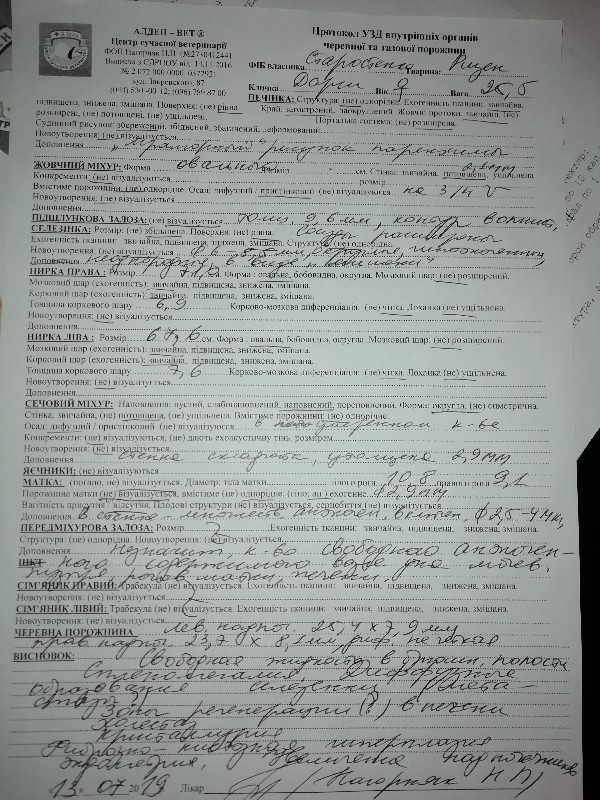 АЛДЕН – ВЕТ ®
Центр сучасної ветеринарії
ФОП Нагорняк П.П.
Виписка з ЄДРПОУ від 14.11.2016
№ 2 072 000 0000 037292
вул. Закревського, 87
(044) 530-00-12; (096) 769 87 00
Протокол УЗД внутрішніх органів
черевної та тазової порожнин
ФІБ власника Старостенко Тварина:
Кличка Дарси Вік 9 Вага 25,5
ПЕЧІНКА: Структура: (не) однорідна. Ехогенність тканини: звичайна,
підвищена, знижена, змішана. Поверхня: (не) рівна Край: загострений, закруглений. Жовчні протоки: звичайні, (не)
розширені, (не) потовщені, (не) ущільнені. Портальна система: (не) розширена.
Судинний рисунок: збережений, збіднений, збагачений, деформований
Новоутворення: (не) візуалізується
Доповнення „Мраморный" рисунок паренхимы
ЖОВЧНИЙ МІХУР: Форма овальная розмір см. Стінка: звичайна, потовщена, ущільнена
Конкременти: (не) візуалізуються розмір
Вмістиме порожнини: (не) однорідне Осад: дифузний / пристінковий (не) візуалізуються на 3/4 V
Новоутворення: (не) візуалізується
Доповнення
ПІДШЛУНКОВА ЗАЛОЗА: (не) візуалізується 9,6 мм, контур
СЕЛЕЗІНКА: Розмір: (не) збільшена. Поверхня: (не) рівна. сосуды расширены
Ехогенність тканини: звичайна, підвищена, знижена, змішана. Структура: (не) однорідна.
Новоутворення: (не) візуалізується
Доповнення
НИРКА ПРАВА: Розмір см. Форма: овальна, бобовидна, округла. Мозковий шар: (не) розширений.
Мозковий шар (ехогенність): звичайна, підвищена, знижена, змішана.
Корковий шар (ехогенність): звичайна, підвищена, знижена, змішана.
Товщина коркового шару 6,9 Корково-мозкова диференціація: (не) чітка. Лоханка (не) ущільнена.
Новоутворення: (не) візуалізується
Доповнення
НИРКА ЛІВА: Розмір 67,6 см. Форма: овальна, бобовидна, округла Мозковий шар: (не) розширений.
Мозковий шар (ехогенність): звичайна, підвищена, знижена, змішана.
Корковий шар (ехогенність): звичайна, підвищена, знижена, змішана.
Товщина коркового шару 7,6 Корково-мозкова диференціація: (не) чітка. Лоханка (не) ущільнена.
Новоутворення: (не) візуалізується
Доповнення
СЕЧОВИЙ МІХУР: Наповнення: пустий, слабонаповнений, наповнений, переповнений. Форма: округла, (не) симетрична.
Стінка: звичайна, (не) потовщена, (не) ущільнена. Вмістиме порожнини: (не) однорідне.
Осад: дифузний / пристінковий (не) візуалізуються в умеренном к-ве
Конкременти: (не) візуалізуються, (не) дають ехоакустичну тінь, розміром
Новоутворення: (не) візуалізується
Доповнення стенка складчата, утолщена 2,9 мм
ЯЄЧНИКИ: (не) візуалізуються
МАТКА: (не) візуалізується. Діаметр: тіла матки лівого рога 10,8 правого рога 9,1
Порожнина матки (не) візуалізується, вмістиме (не) однорідне, (гіпо; ан) ехогенне ф 2,9 мм
Вагітність присутня / відсутня. Плодові структури (не) візуалізується, серцебиття (не) візуалізується.
Доповнення В стенке множеств анэхоген, включен, ф 2,5-4 мм,
ПЕРЕДМІХУРОВА ЗАЛОЗА: Розмір Ехогенність тканини: звичайна, підвищена, знижена, змішана.
Структура: (не) однорідна. Новоутворення: (не) візуалізується
Доповнення Незначит, к-во свободного анэхоген-
ШКТ ного содержимого возле дна мочев.
пузыря, рогов матки, печени,
СІМ'ЯНИК ПРАВИЙ: Трабекула (не) візуалізується. Ехогенність тканини: звичайна, підвищена, знижена, змішана.
Новоутворення: (не) візуалізується
СІМ'ЯНИК ЛІВИЙ: Трабекула (не) візуалізується. Ехогенність тканини: звичайна, підвищена, знижена, змішана.
Новоутворення: (не) візуалізується
ЧЕРЕВНА ПОРОЖНИНА Лев. надпоч. 25,4 х 7,9 мм
прав надпоч. 23,7 х 8,1 мм, диф. нечеткая
ВИСНОВОК: Свободная жидкость в брюшн, полости
Спленомегалия, Диффузные
образования селезенки (мета-
стазы)
Зоны регенерации (?) в печени
Холестаз
Кристаллурия
Фиброзно-кистозная гиперплазия
эндометрия, Увеличены надпочечники
13. 07 2019 Лікар Нагорняк П П